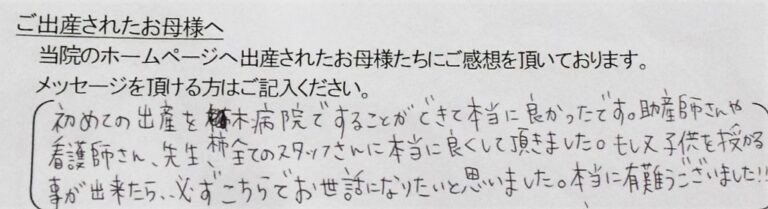 ご出産されたお母様へ
当院のホームページへ出産されたお母様たちにご感想を頂いております。
メッセージを頂ける方はご記入ください。
初めての出産を柿木病院ですることができて本当に良かったです。助産師さんや
看護師さん、先生、全てのスタッフさんに本当に良くして頂きました。もし又子供を授かる
事が出来たら、必ずこちらでお世話になりたいと思いました。本当に有難うございました!!